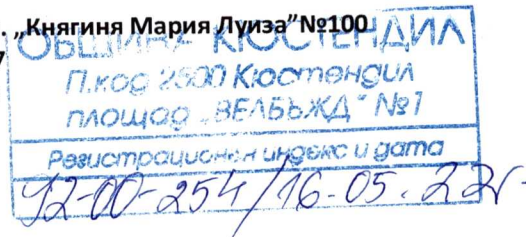 . „Княгиня Мария Луиза”№100
ОБЩИНА КЮСТЕНДИЛ
П.код 2500 Кюстендил
площад „ВЕЛБЪЖД" №1
Регистрационен индекс и дата
92-00-254/16-05.22г.